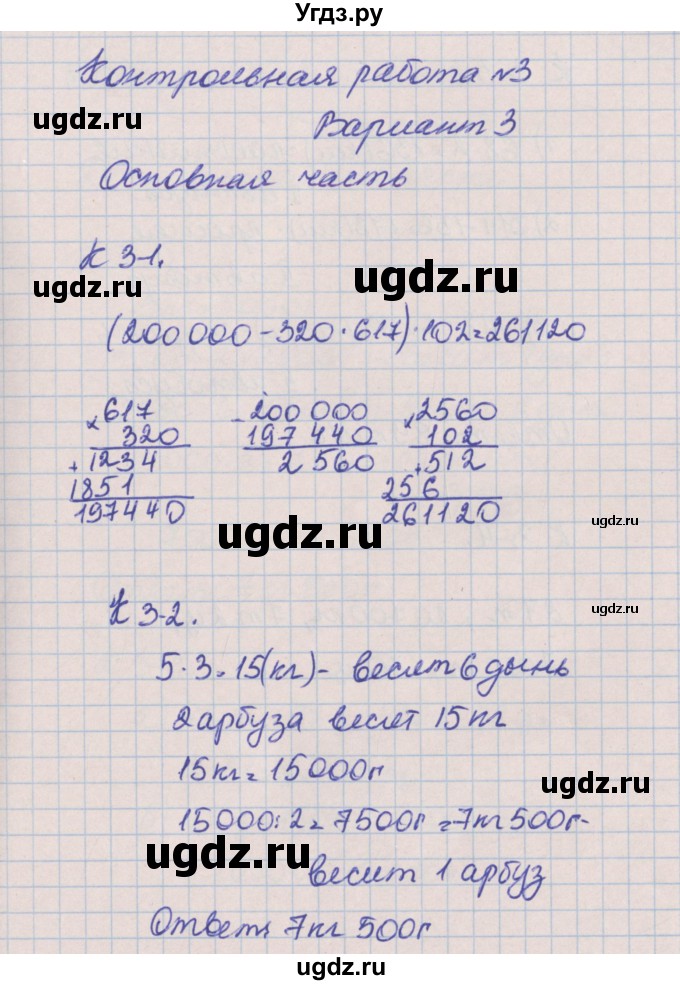 Угдз.ру
Контрольная работа №3
ugdz.ru
Вариант 3
Основная часть
К 3-1.
ugdz.ru
ugdz.ru
(200 000 - 320 · 617) · 102 = 261120
× 617
320
+ 1234
1851
197440
- 200 000
197 440
2 560
× 2560
102
+ 512
256
261120
ugdz.ru
ugdz.ru
К 3-2.
ugdz.ru
5 · 3 = 15(кг) - весят 6 дынь
2 арбуза весят 15 кг
15 кг = 15000г
ugdz.ru
15000 : 2 = 7500г = 7кг 500г -
ugdz.ru
весит 1 арбуз
Ответ: 7кг 500г
ugdz.ru